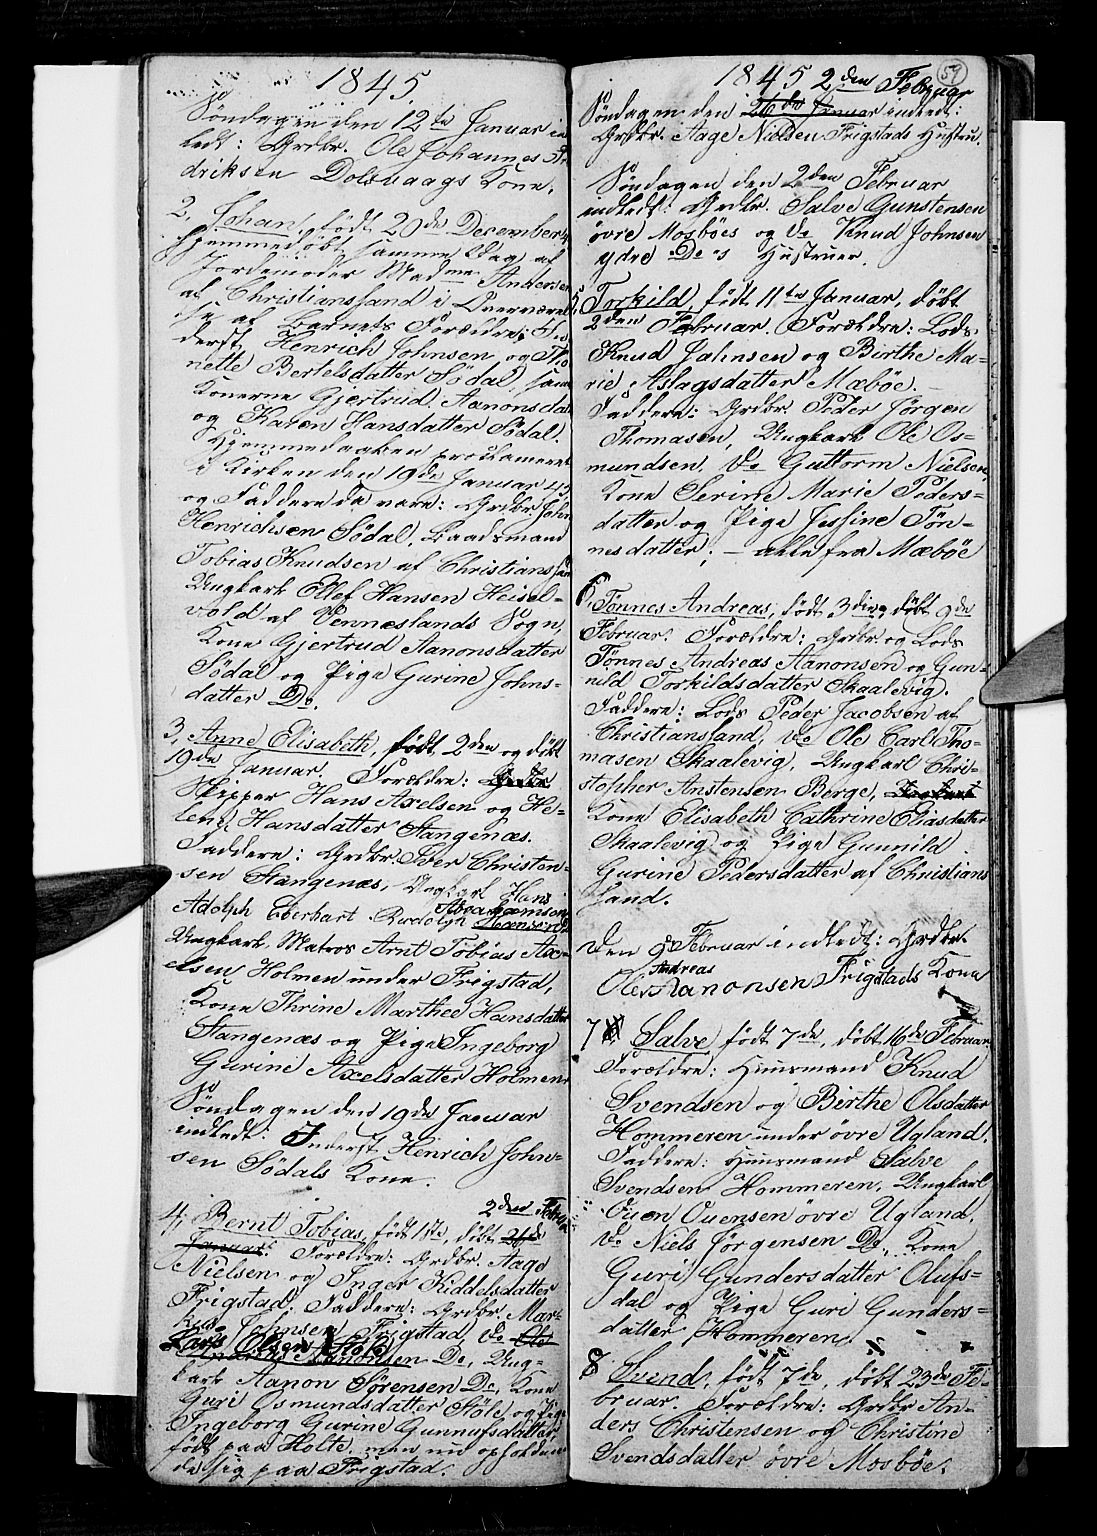 1845.
Søndagen den 12te Januar in
ledt: Grdbr. Ole Johannes
driksen Dolsvaags Kone.
2, Johan, født 20de December,
hjemmedøbt samme Dag af
Jordemoder Madme Andersen
af Christianssand i Overværel
se af Barnets Forældre: In
derst Henrich Johnsen og Tho
nette Bertelsdatter Sødal, samt
Konerne Gjertrud Aanonsdat
og Karen Hansdatter Sødal.
Hjemmedaaben proclameret
i Kirken den 19de Januar 45
og Faddere da vare: Grdbr John
Henrichsen Sødal, Baadsmand
Tobias Knudsen af Christianssan
Ungkarl Ellef Hansen Heisel-
vold af Venneslands Sogn,
Kone Gjertrud Aanonsdatter
Sødal og Pige Gurine Johns-
datter Do.
3, Anne Elisabeth, født 2den og døbt
19de Januar. Forældre:
Skipper Hans Axelsen og He-
lene Hansdatter Stangenæs.
Faddere: Grdbr. Peer Christen-
sen Stangenæs, Ungkarl Hans
Adolph Eberhart Rudolph Abrahamson
Ungkarl Matros Arnt Tobias Ax-
elsen Holmen under Frigstad,
Kone Thrine Marthea Hansdatter
Stangenæs og Pige Ingeborg
Gurine Axelsdatter Holmen.
Søndagen den 19de Januar
indledt: Inderst Henrich John-
sen Sødals Kone.
2den Februar
4, Bernt Tobias, født 1ste, døbt 26de
Januar. Forældre: Grdbr. Aage
Nielsen og Inger Kiddelsdatter
Frigstad. Faddere: Grdbr Mar-
kus Johnsen Frigstad, Do Ole
Lars Olsen Støle
Andreas Aanonsen Do, Ung-
karl Aanon Sørensen Do, Kone
Guri Osmundsdatter Støle, og Pige
Ingeborg Gurine Gunnufsdatter,
født paa Holte, men nu opholden
de sig paa Frigstad.
59
1845 2den Februar
Søndagen den 26de Januar indledt:
Grdbr. Aage Nielsen Frigstads Hustru.
Søndagen den 2den Februar
indledt: Grdbr. Salve Gunstensen
øvre Mosbøes og Do Knud Johnsen
ydre Do's Hustruer.
5, Torkild, født 11te Januar, døbt
2den Februar. Forældre: Lods
Knud Jahnsen og Birthe Ma-
rie Aslagsdatter Mæbøe. —
Faddere: Grdbr. Peder Jørgen
Thomasen, Ungkarl Ole Os-
mundsen, Do Guttorm Nielsen,
Kone Serine Marie Peders-
datter og Pige Jessine Tøn-
nesdatter; — alle fra Mæbøe
6, Tønnes Andreas, født 3die, døbt 9de
Februar. Forældre: Grdbr. og Lods
Tønnes Andreas Aanonsen og Gun-
nild Torkildsdatter Skaalevig.
Faddere: Lods Peder Jacobsen af
Christianssand, Do Ole Carl Tho-
masen Skaalevig, Ungkarl Chri-
stopher Anstensen Berge,
Kone Elisabeth Cathrine Eliasdatter
Skaalevig og Pige Gunnild
Gurine Pedersdatter af Christians
sand.
Den 9 Februar indledt: Grdbr.
Ole Andreas Aanonsen Frigstads Kone
7 Salve født 7de, døbt 16de Februar
Forældre: Huusmand Knud
Svendsen og Birthe Olsdatter
Hommeren under øvre Ugland.
Faddere: Huusmand Salve
Svendsen Hommeren, Ungkarl
Ouen Ouensen øvre Ugland,
Do Niels Jørgensen Do, Kone
Guri Gundersdatter Olufs-
dal og Pige Guri Gunders-
datter Hommeren
8 Svend, født 7de, døbt 23de Fe-
bruar. Forældre: Grdbr An-
ders Christensen og Christine
Svendsdatter øvre Mosbøe.